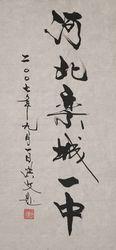 河北栾城一中
二〇〇七年九月一日